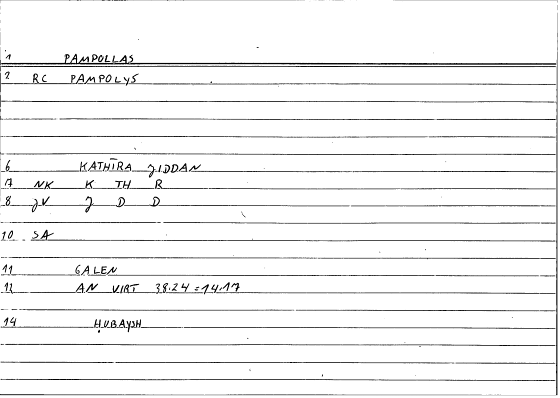 1 PAMPOLLAS
2 RC PAMPOLYS
6 KATHĪRA JIDDAN
7 NK K TH R
8 JV J D D
10 SA
11 GALEN
12 AN VIRT 38.24 = 14.17
14 ḤUBAYSH